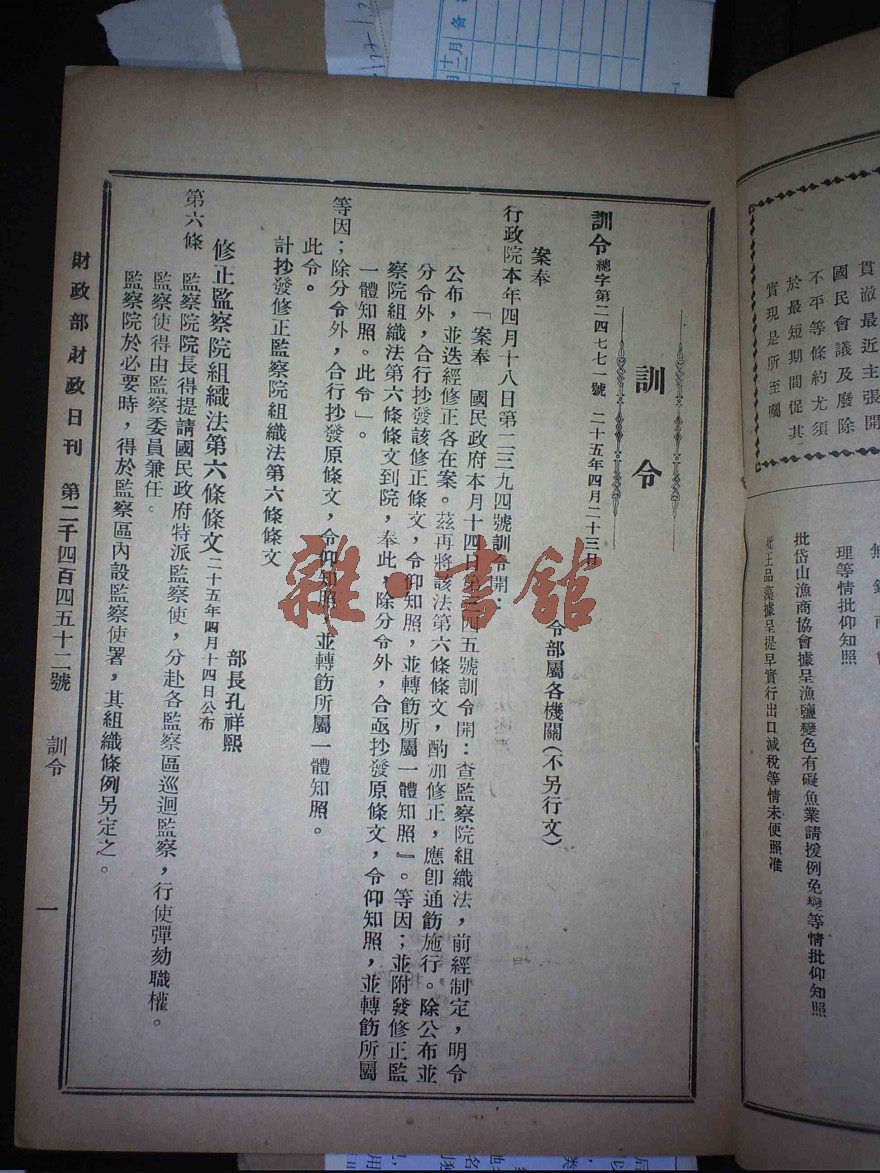 貫澈最近主張開
國民會議及廢除
不平等條約尤須
於最短期間促其
實現是所至囑
理等情批仰知照
批岱山漁商協會據呈漁鹽變色有礙魚業請援例免變等情批仰知照
批王品藻據呈提早實行出口減稅等情未便照准
訓令
訓令總字第二四七七一號 二十五年四月二十三日
令部屬各機關(不另行文)
案奉
行政院本年四月十八日第二三九四號訓令開：
「案奉 國民政府本月十四日第三四五號訓令開：查監察院組織法，前經制定，明令
公布，並迭經修正各在案。茲再將該法第六條條文，酌加修正，應卽通飭施行。除公布並
分令外，合行抄發該修正條文，令仰知照，並轉飭所屬一體知照』。等因；並附發修正監
察院組織法第六條條文到院，奉此，除分令外，合亟抄發原條文，令仰知照，並轉飭所屬
一體知照。此令」。
等因；除分令外，合行抄發原條文，令仰知照，並轉飭所屬一體知照。
此令。
計抄發修正監察院組織法第六條條文
部長孔祥熙
修正監察院組織法第六條條文二十五年四月十四日公布
第六條 監察院院長得提請國民政府特派監察使，分赴各監察區巡迴監察，行使彈劾職權。
監察使得由監察委員兼任。
監察院於必要時，得於監察區內設監察使署，其組織條例另定之。
財政部財政日刊 第二千四百四五十二號 訓令 一
雜·書館